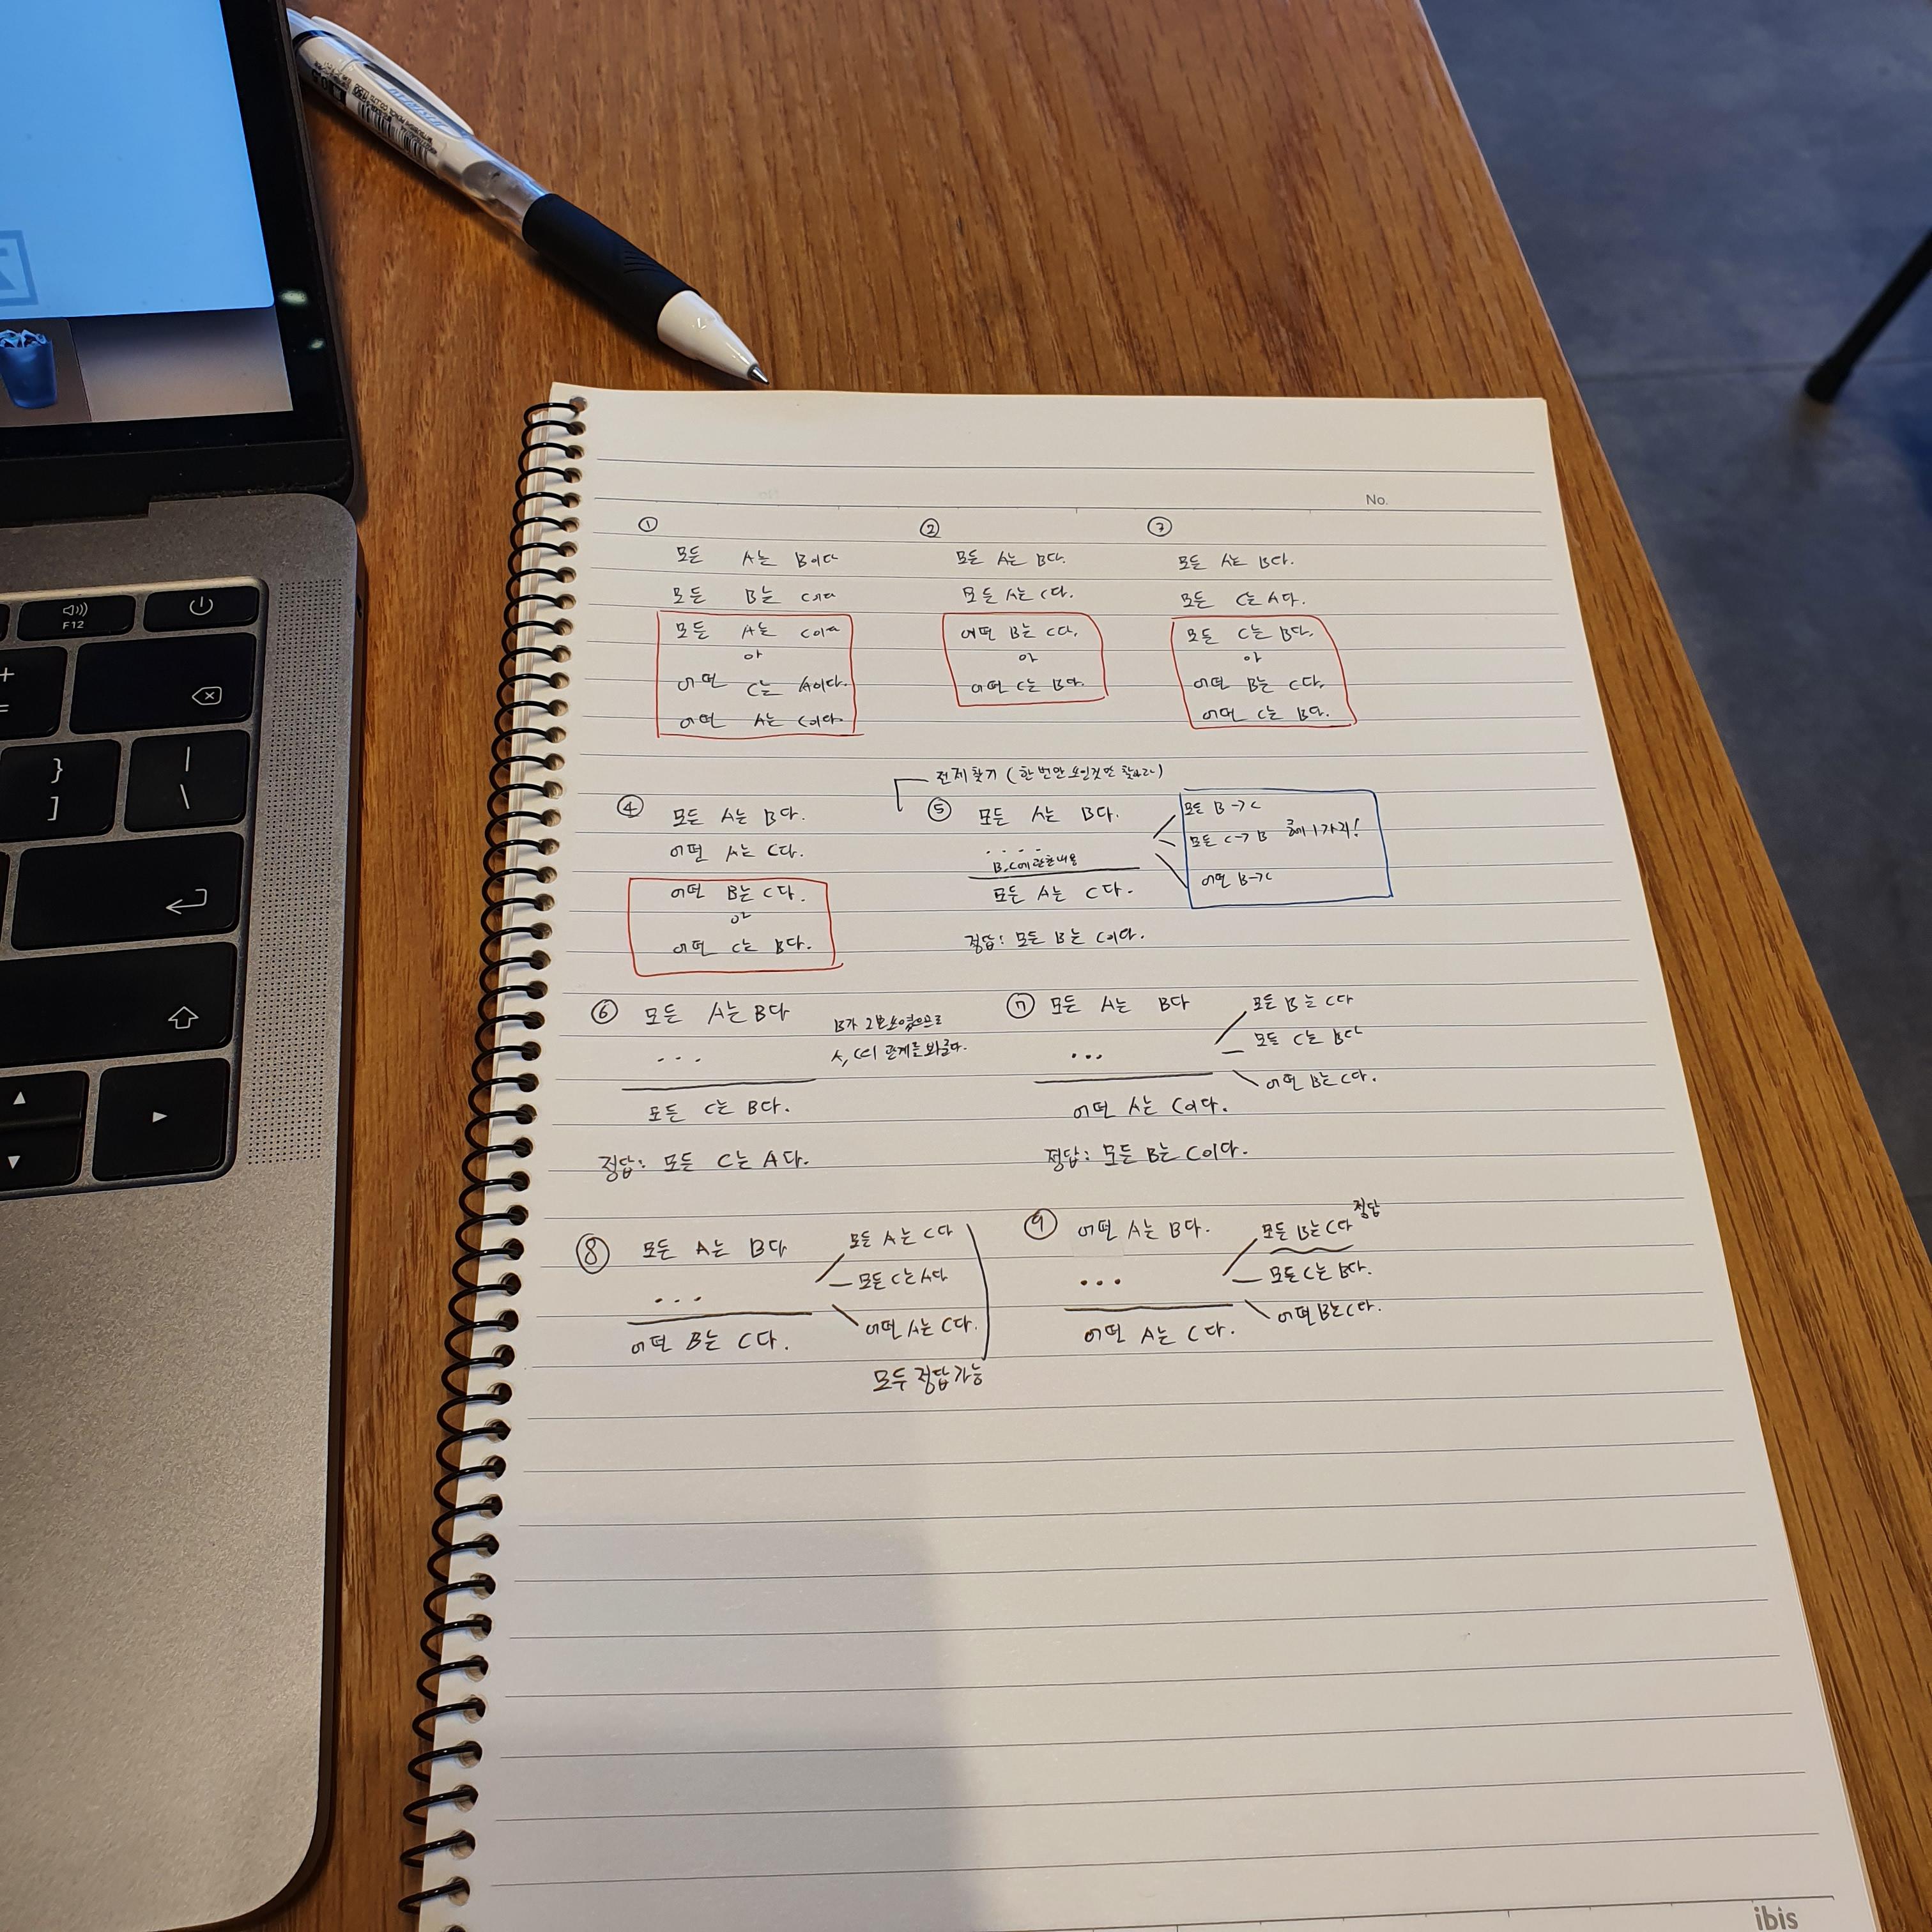 F12
No.
①
모든 A는 B이다
모든 B는 C이다
모든 A는 C이다
or
어떤 C는 A이다.
어떤 A는 C이다.
②
모든 A는 B다.
모든 A는 C다.
어떤 B는 C다.
or
어떤 C는 B다.
③
모든 A는 B다.
모든 C는 A다.
모든 C는 B다.
or
어떤 B는 C다.
어떤 C는 B다.
④ 모든 A는 B다.
어떤 A는 C다.
어떤 B는 C다.
or
어떤 C는 B다.
전제찾기 (한 번만 쓰인것만 찾아라)
⑤ 모든 A는 B다.
....
B, C에 관한 내용
모든 A는 C다.
모든 B→C
모든 C→B 중에 1가지!
어떤 B→C
정답: 모든 B는 C이다.
⑥ 모든 A는 B다
...
모든 C는 B다.
B가 2번 쓰였으므로
A, C의 관계를 봐라.
정답: 모든 C는 A다.
⑦ 모든 A는 B다
...
어떤 A는 C이다.
모든 B는 C다
모든 C는 B다
어떤 B는 C다.
정답: 모든 B는 C이다.
⑧ 모든 A는 B다
...
어떤 B는 C다.
모든 A는 C다
모든 C는 A다
어떤 A는 C다.
모두 정답 가능
⑨ 어떤 A는 B다.
...
어떤 A는 C다.
모든 B는 C다 정답
모든 C는 B다.
어떤 B는 C다.
ibis